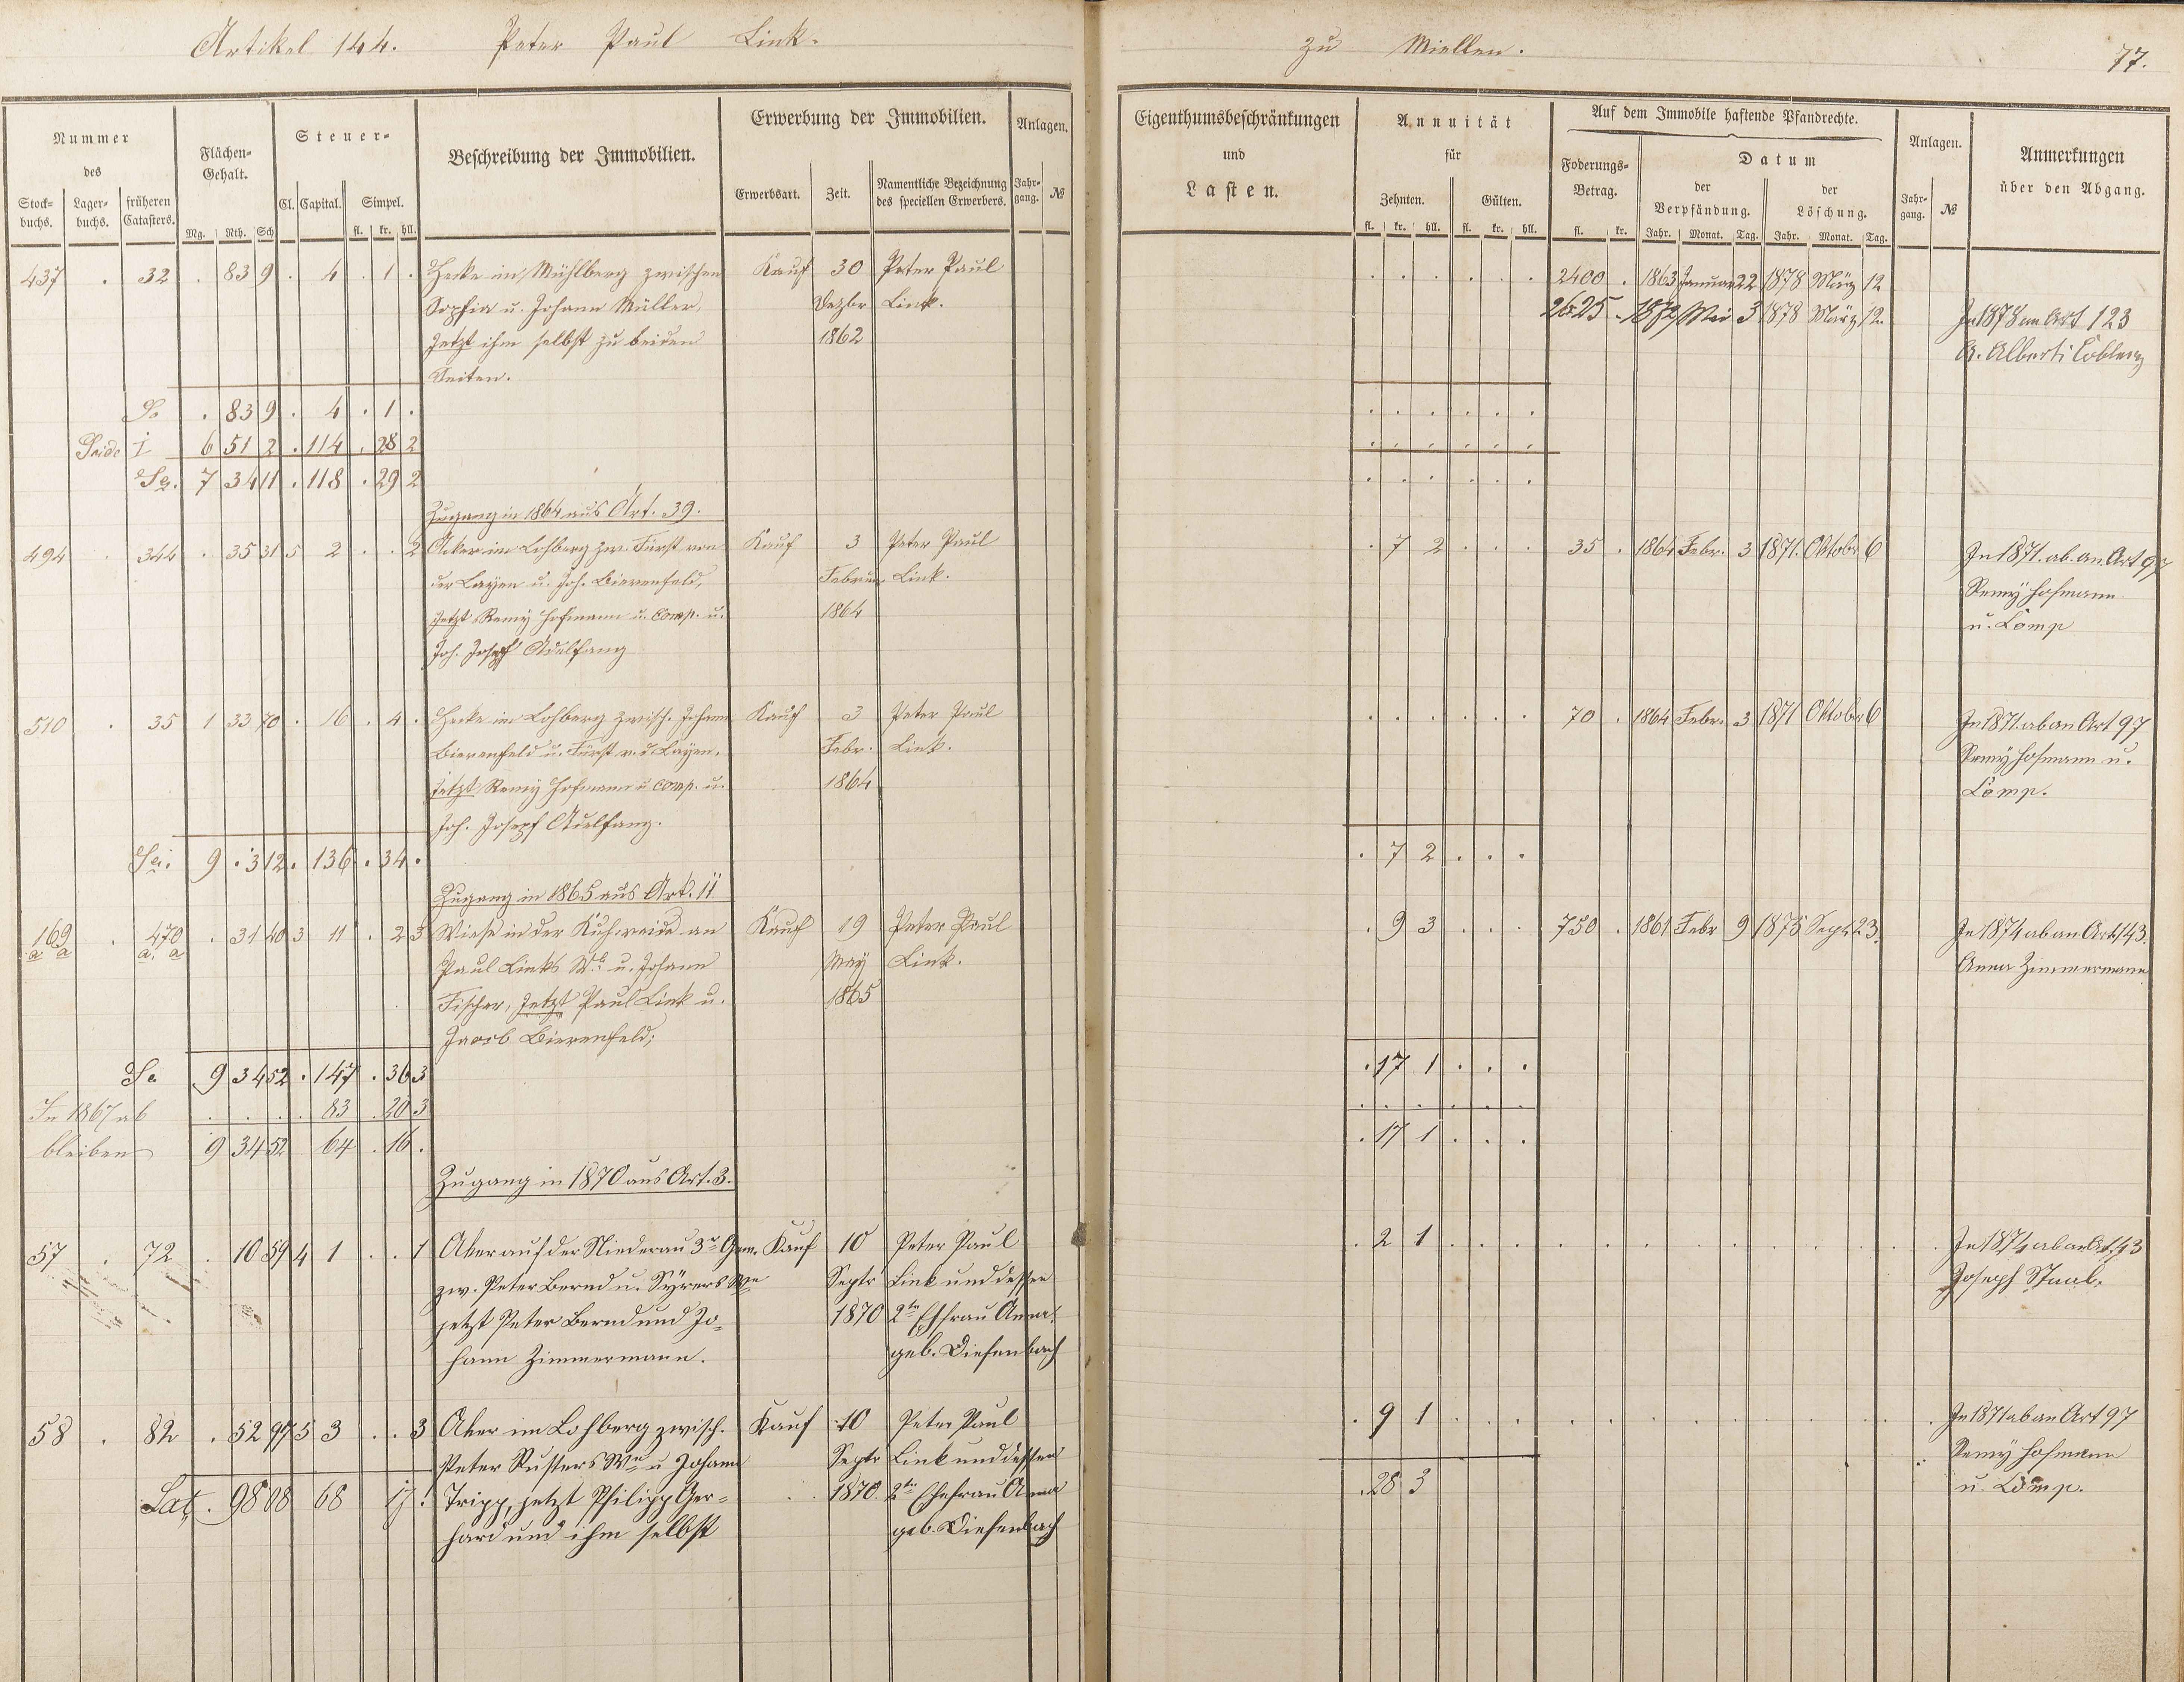 Artikel 144. Peter Paul Link.
zu Miellen. 77.
Nummer des
Stockbuchs. Lagerbuchs. früheren Catasters.
Flächen-Gehalt.
Mg. Rth. Sch
Steuer-
Cl. Capital. Simpel.
fl. kr. hll.
Beschreibung der Immobilien.
Erwerbung der Immobilien.
Erwerbsart. Zeit. Namentliche Bezeichnung des speciellen Erwerbers.
Anlagen.
Jahrgang. №
Eigenthumsbeschränkungen
und
Lasten.
Annuität
für
Zehnten. Gülten.
fl. kr. hll. fl. kr. hll.
Auf dem Immobile haftende Pfandrechte.
Foderungs-Betrag.
fl. kr.
Datum
der Verpfändung. der Löschung.
Jahr. Monat. Tag. Jahr. Monat. Tag.
Anlagen.
Jahrgang. №
Anmerkungen
über den Abgang.
437 . 32 . 83 9 . 4 . 1 . Hecke im Mühlberg zwischen Kauf 30 Peter Paul . . . . . . 2400 . 1863 Januar 22 1878 März 12
Sophia u. Johann Müller, Dezbr Link. 2625 . 1872 Mai 3 1878 März 12. In 1878 an Art 123
Jetzt ihm selbst zu beiden 1862 A. Alberti Coblenz
Seiten.
. 83 9 . 4 . 1 . . . . . . .
6 51 2 . 114 . 28 2 . . . . . .
7 34 11 . 118 . 29 2 . . . . . .
Zugang in 1864 aus Art. 39.
494 . 344 . 35 31 5 2 . . 2 Acker im Lohberg zw. Fürst von Kauf 3 Peter Paul . 7 2 . . . 35 . 1864 Febr. 3 1871. Oktobr 6 In 1871. ab. an. Art 97
der Layen u. Joh. Bierenfeld, Februar Link. Remy Hofmann
jetzt Remy Hofmann u. Comp. u. 1864 u. Comp
Joh. Joseph Aulfang
510 . 35 1 33 70 . 16 . 4 . Hecke im Lohberg zwisch. Johann Kauf 3 Peter Paul . . . . . . 70 . 1864 Febr. 3 1871 Oktober 6 In 1871 ab an Art 97
Bierenfeld u. Fürst v. d. Layen, Febr. Link. Remy Hofmann u.
jetzt Remy Hofmann u Comp. u. 1864 Comp.
Joh. Josepf Aulfang.
9 . 3 12 . 136 . 34 . . 7 2 . . .
Zugang in 1865 aus Art. 11
169 . 470 . 31 40 3 11 . 2 3 Wiese in der Kuhweide an Kauf 19 Peter Paul . 9 3 . . . 750 . 1861 Febr 9 1875 Sept. 23. In 1874 ab an Art 143.
a a a. a Paul Links Wb u. Johann May Link. Anna Zimmermann
Fischer, Jetzt Paul Link u. 1865
Jacob Bierenfeld;
Sa 9 34 52 . 147 . 36 3 . 17 1 . . .
In 1867 ab . . . . 83 . 20 3 . . . . . .
bleiben 9 34 52 64 . 16 . . 17 1 . . .
Zugang in 1870 aus Art. 3.
57 . 72 . 10 59 4 1 . . 1 Aker auf der Niederau 3r Gew. Kauf 10 Peter Paul . 2 1 . . . In 1874 ab an Art. 43
zw. Peter Bernd u. We Septr Link und dessen Joseph Staul.
jetzt Peter Bernd und Jo- 1870 2te Ehfrau Anna
hann Zimmermann. geb. Diefenbach
58 . 82 . 52 97 5 3 . . 3 Aker im Lohberg zwisch. Kauf 10 Peter Paul . 9 1 . . . In 1871 ab an Art 97
Peter Rusters We u Johann Septr Link und dessen Remy Hofmann
Lat. 98 08 68 17 . Tripp, jetzt Philipp Ger- 1870. 2te Ehefrau Anna . 28 3 u. Comp.
hard und ihm selbst geb. Diefenbach